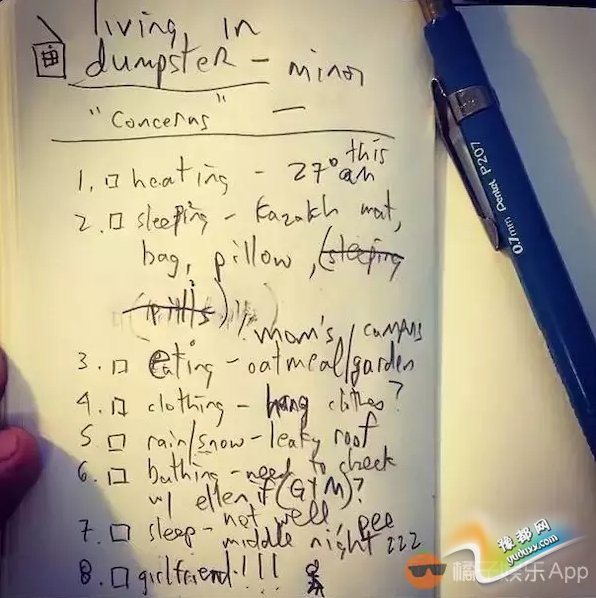 living in
dumpster - minor
"concerns" —
1. heating - 27° this am
2. sleeping - Kazakh mat,
bag, pillow, (sleeping
pills)
mom's/campus
3. eating - oatmeal/garden
4. clothing - hang clothes?
5. rain/snow - leaky roof
6. bathing - need to check
w/ ellen if (GYM)?
7. sleep - not well, pee
middle night zzz
8. girlfriend!!!
0.7mm Pentel P207
豫都网
yuduxx.com
橘子娱乐App